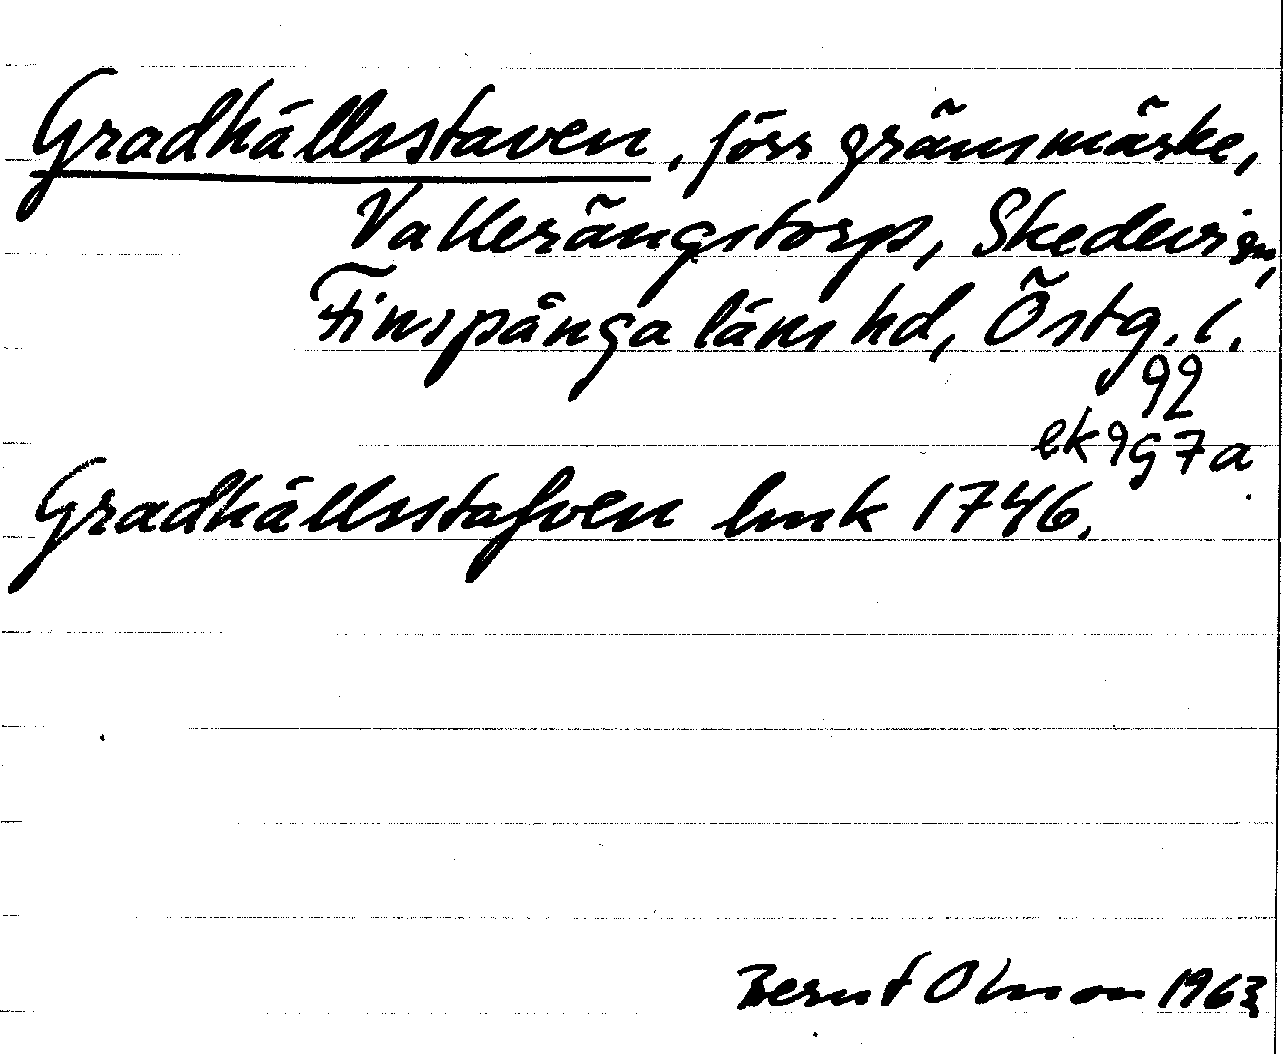 Gradhällsstaven, förr gränsmärke,
Vallerängstorp, Skedevi sn,
Finspånga läns hd, Östg. l.
92
ek 9G7a
Gradhällsstafven lmk 1746.
Bernt Olsson 1963